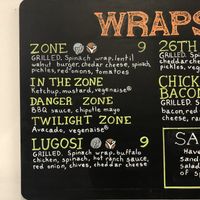 WRAPS
ZONE 9
GRILLED, Spinach wrap, lentil
walnut burger, chedar cheese, spinach,
pickles, red onions, tomatoes
IN THE ZONE
Ketchup, mustard, vegenaise®
DANGER ZONE
BBQ sauce, chipotle mayo
TWILIGHT ZONE
Avocado, vegenaise®
LUGOSI 9
GRILLED, Spinach wrap, buffalo
chicken, spinach, hot ranch sauce,
red onion, chives, cheddar cheese
26TH
GRILLED, S
cheddar ch
pickles, ve
CHICK
BACON
bacon, red
ranch
SA
Have
Sand
salad
of Sp